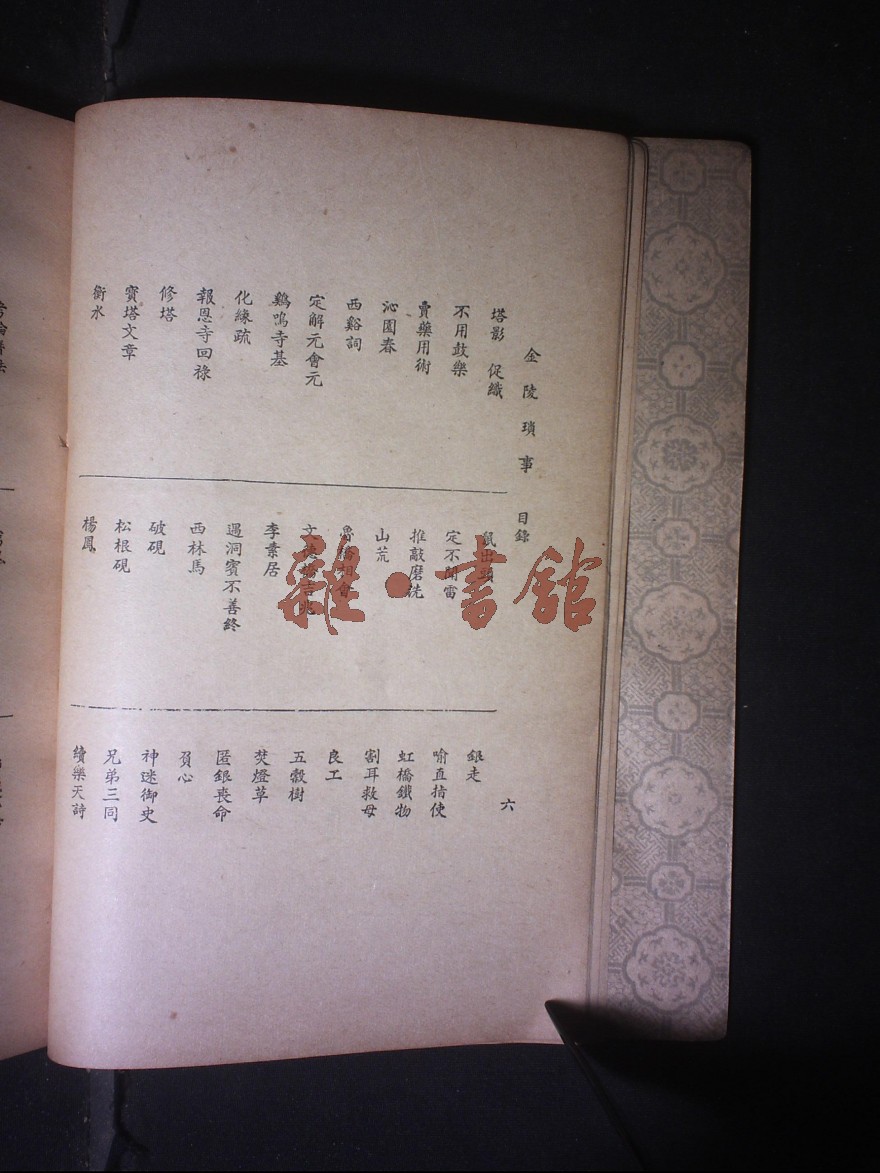 金陵瑣事 目錄
六
塔影 促織
不用鼓樂
賣藥用術
沁園春
西谿詞
定解元會元
鷄鳴寺基
化緣疏
報恩寺回祿
修塔
寶塔文章
衡水
鼠出頭
定不聞雷
推敲磨洗
山荒
李素居
遇洞賓不善終
西林馬
破硯
松根硯
楊鳳
銀走
喻直指使
虹橋鐵物
割耳救母
良工
五穀樹
焚燈草
匿銀喪命
負心
神迷御史
兄弟三同
續樂天詩
雜·書館